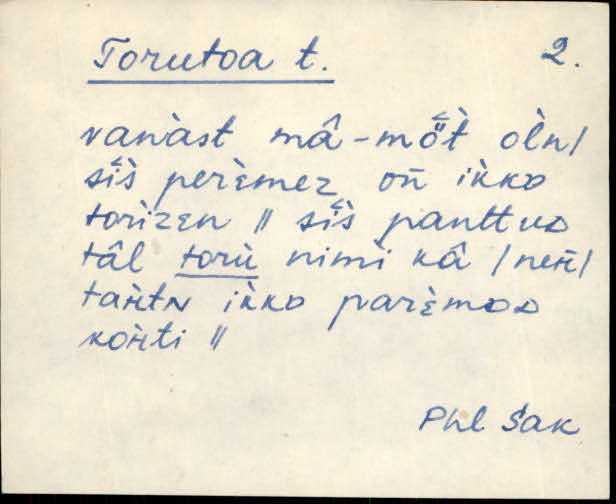 Torutoa t. 2.
vanàst mâ-mö̀t òln/
sìs perèmez on ìkko
torìzen // sìs panttuo
tâl torù nimi kâ /nen/
tahtn ìkko parèmoo
kohti //
Phl Sak